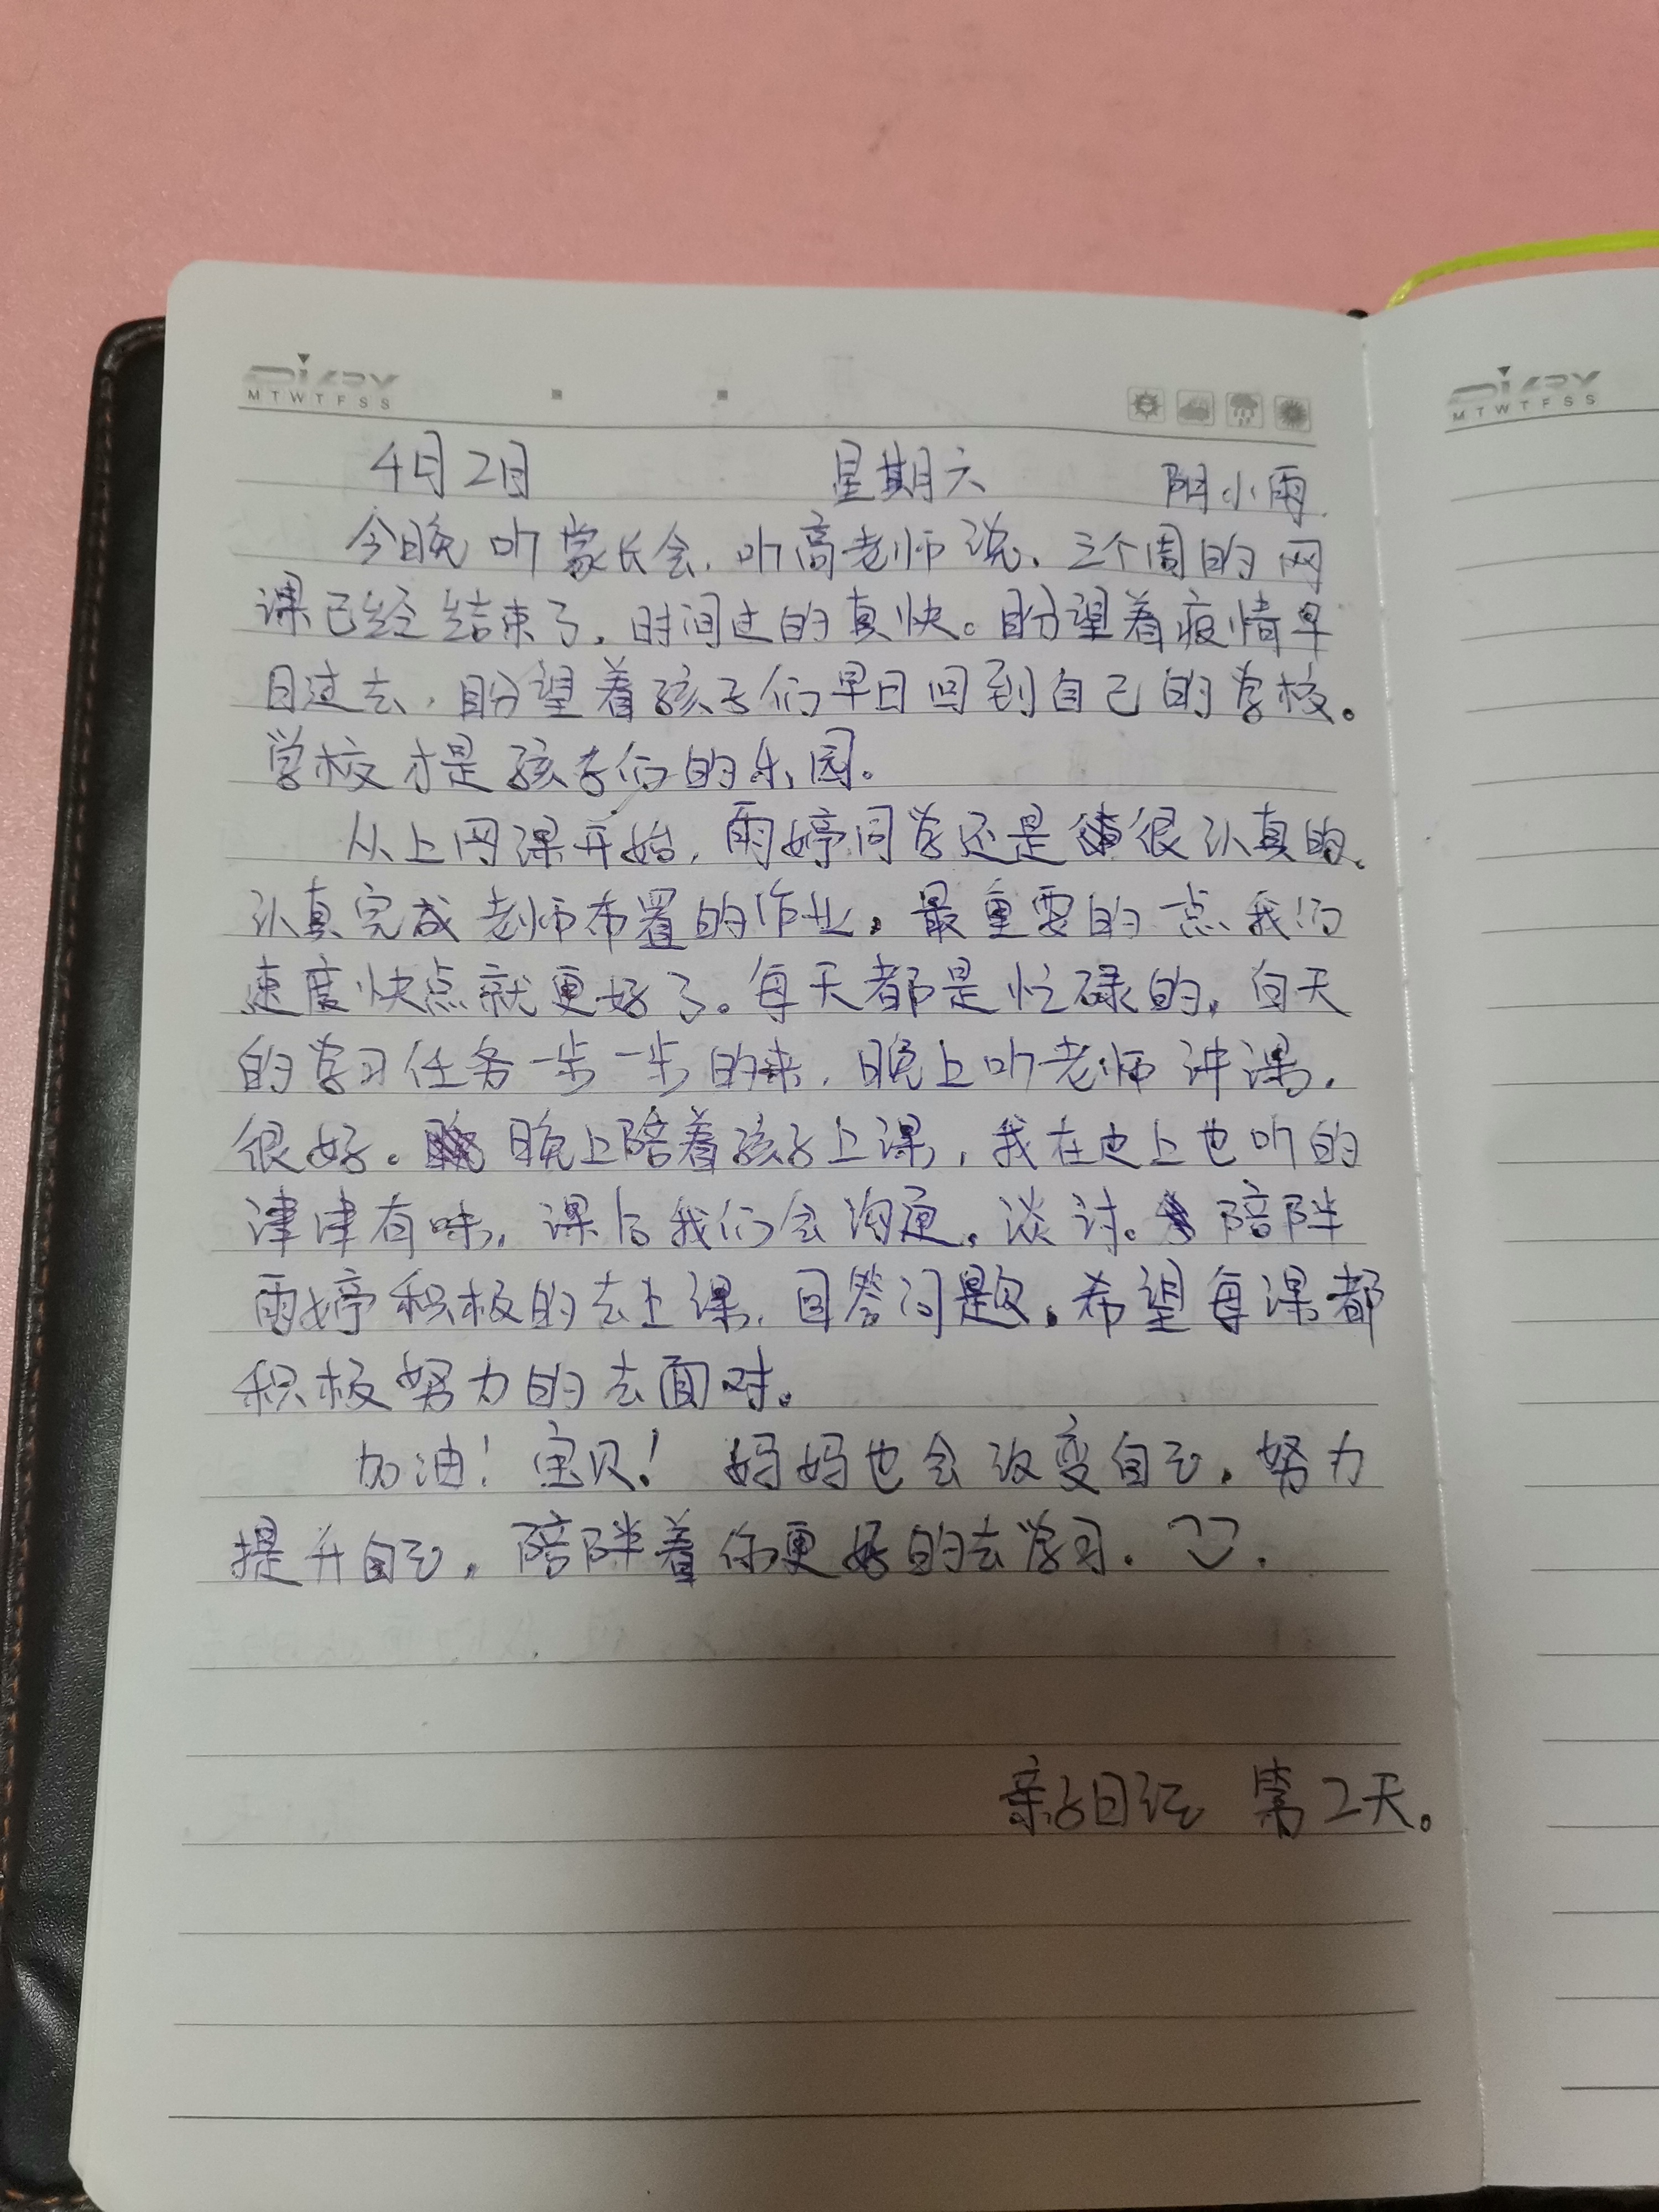 DIARY
MTWTFSS
DIARY
MTWTFSS
4月2日 星期六 阴小雨
今晚听家长会,听高老师说,三个周的网
课已经结束了,时间过的真快。盼望着疫情早
日过去,盼望着孩子们早日回到自己的学校。
学校才是孩子们的乐园。
从上网课开始,雨婷同学还是很认真的,
认真完成老师布置的作业,最重要的一点我们
速度快点就更好了。每天都是忙碌的,白天
的学习任务一步一步的来,晚上听老师讲课,
很好。晚上陪着孩子上课,我在边上也听的
津津有味,课后我们会沟通,谈讨。陪伴
雨婷积极的去上课,回答问题,希望每课都
积极努力的去面对。
加油!宝贝!妈妈也会改变自己,努力
提升自己,陪伴着你更好的去学习.
亲子日记 第2天。